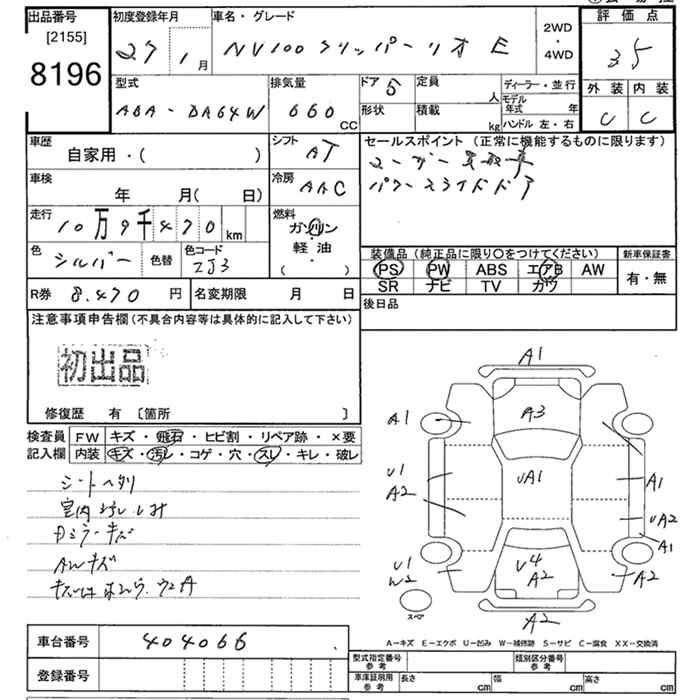 出品番号
[2155]
8196
初度登録年月
27 1月
車名・グレード
NV100クリッパーリオ E
2WD
・
4WD
評価点
35
外装 内装
C C
型式
ABA-DR64W
排気量
660 CC
ドア 5
形状
定員 人
積載 kg
ディーラー・並行
モデル年式 年
ハンドル 左・右
車歴
自家用・( )
シフト
AT
車検
年 月( 日)
冷房
AAC
走行
10万9千470km
燃料
ガソリン
軽・油
( )
色
シルバー
色替
色コード
ZJ3
R券 8.470 円
名変期限 月 日
セールスポイント (正常に機能するものに限ります)
ユーザー買取車
パワースライドドア
装備品 (純正品に限り○をつけてください)
PS PW ABS エアB AW
SR ナビ TV カワ
新車保証書
有・無
後日品
注意事項申告欄 (不具合内容等は具体的に記入して下さい)
初出品
修復歴 有 [箇所 ]
検査員記入欄
FW キズ・飛石・ヒビ割・リペア跡・×要
内装 キズ・汚レ・コゲ・穴・スレ・キレ・破レ
シートヘタリ
室内汚れ しみ
Dミラーキズ
AWキズ
A1
A1
A3
U1
A2
UA1
A1
UA2
A1
U1
W2
U4
A2
A2
A2
スペア
A-キズ E-エクボ U-凹み W-補修跡 S-サビ C-腐食 XX-交換済
車台番号 404066
登録番号
型式指定番号
参考
類別区分番号
参考
車庫証明用
参考
長さ cm
幅 cm
高さ cm